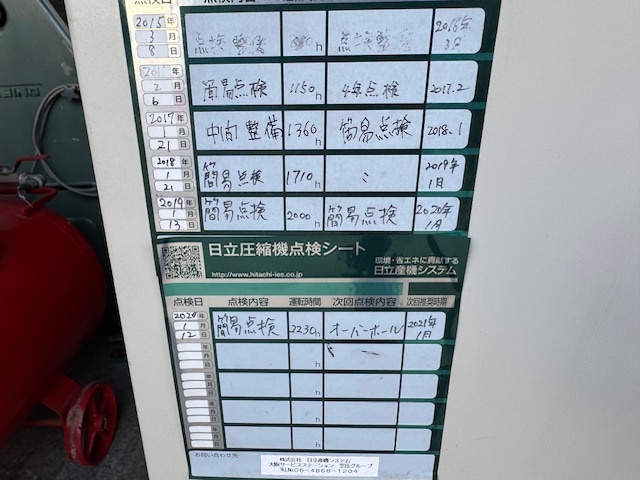 点検日 点検内容
2015年 3月 8日 点検整備 h 点検整備 2016年
2月 6日 簡易点検 1150h 4年点検 2017.2
2017年 1月 21日 中間整備 1360h 簡易点検 2018.1
2018年 1月 21日 簡易点検 1710h 〃 2019年1月
2019年 1月 13日 簡易点検 2000h 簡易点検 2020年1月
日立圧縮機点検シート
環境・省エネに貢献する
http://www.hitachi-ies.co.jp 日立産機システム
点検日 点検内容 運転時間 次回点検内容 次回推奨時期
2020年 1月 12日 簡易点検 2230h オーバーホール 2021年1月
年 月 日 h
年 月 日 h
年 月 日 h
年 月 日 h
お問い合わせ先
株式会社 日立産機システム
大阪サービスステーション 空圧グループ
TEL06-4868-1204